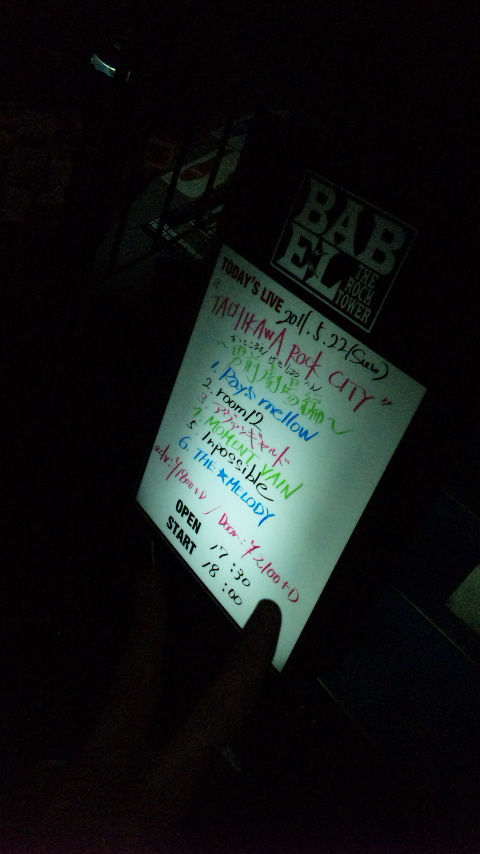 BAB
EL
THE
ROCK
TOWER
TODAY'S LIVE 2011.5.22(Sun)
"TACHIKAWA ROCK CITY"
～男前劇場編～
1. Rays mellow
2. room12
3. アヴァンギャルド
4. MOMENT VAIN
5. Impossible
6. THE★MELODY
adv:¥1800+D / Door:¥2,100+D
OPEN 17:30
START 18:00